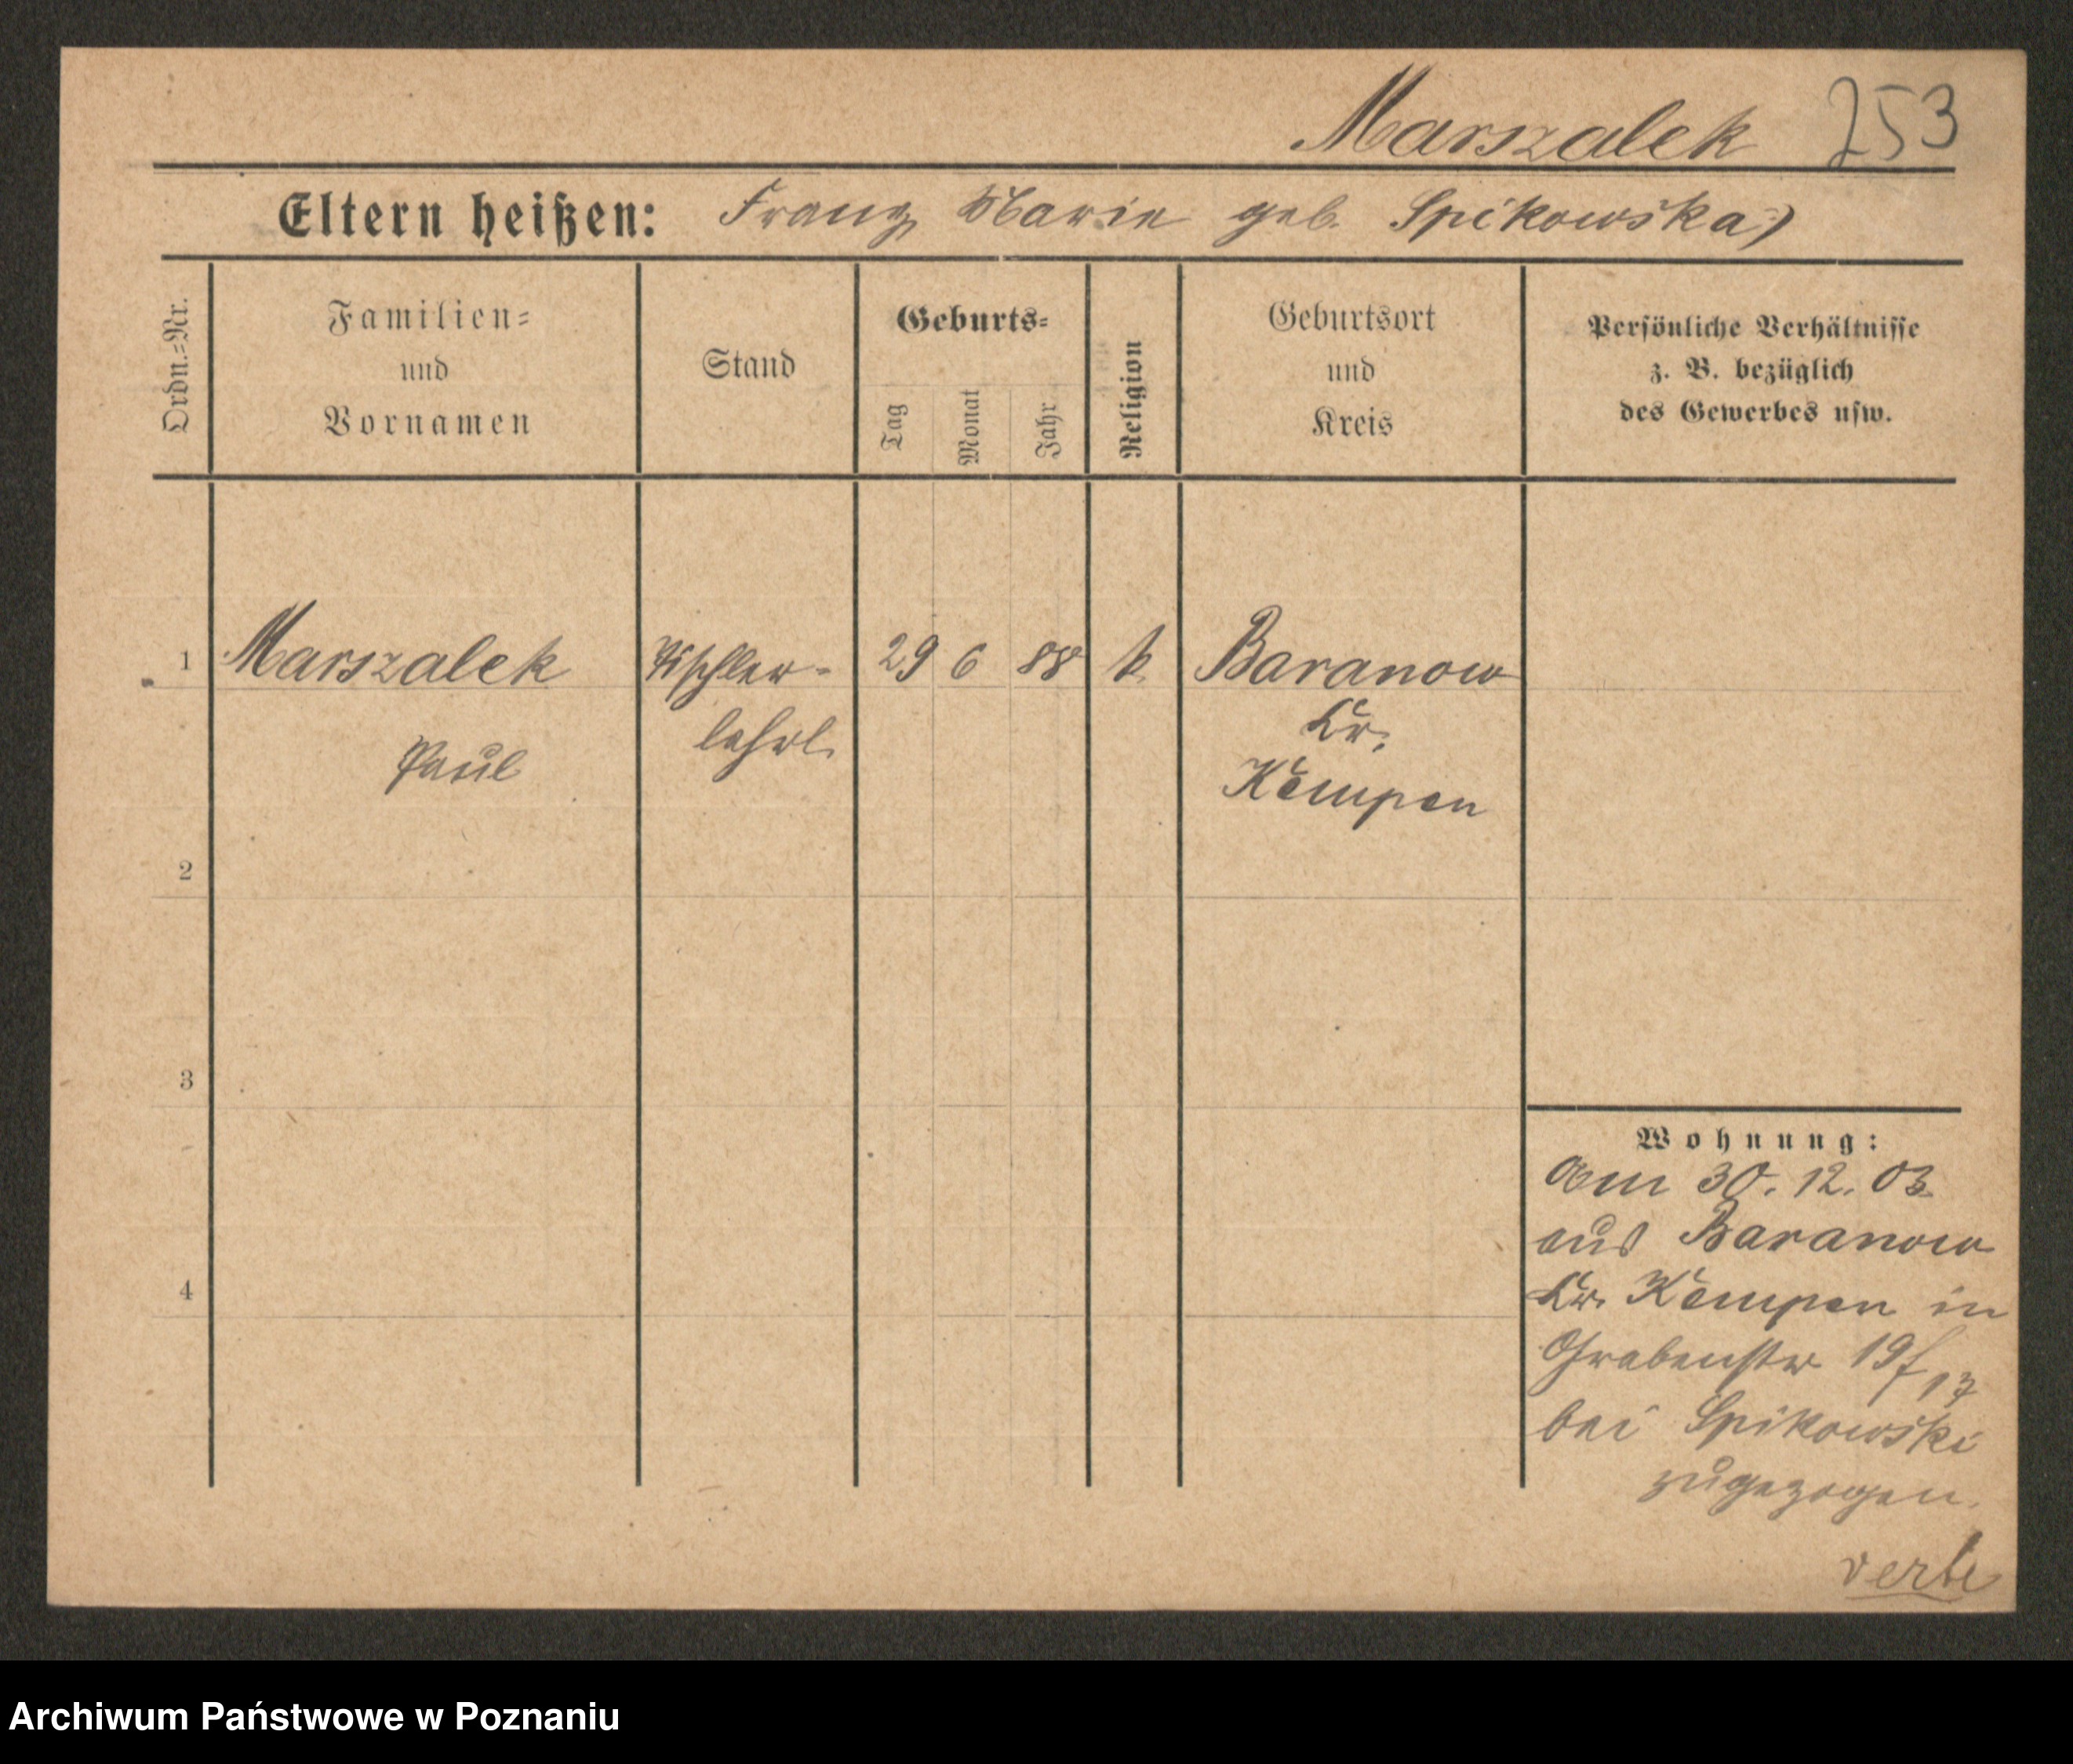 Marszalek 253
Eltern heißen: Franz Marie geb. Spikowska)
Ordn.=Nr.
Familien=
und
Vornamen
Stand
Geburts=
Tag
Monat
Jahr
Religion
Geburtsort
und
Kreis
Persönliche Verhältnisse
z. B. bezüglich
des Gewerbes usw.
1 Marszalek Tischler- 29 6 88 k. Baranow
Paul lehrl. Kr.
Kempen
2
3
4
Wohnung:
Am 30. 12. 03
aus Baranow
Kr. Kempen in
Grabenstr 19f 17
bei Spikowski
zugezogen.
Archiwum Państwowe w Poznaniu